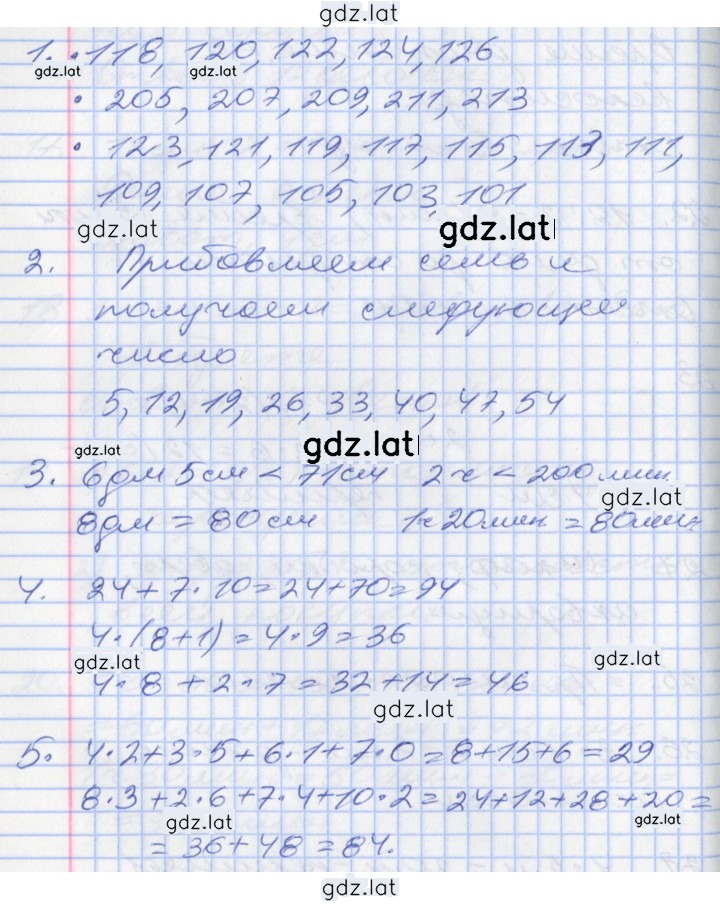 gdz.lat
1. • 118, 120, 122, 124, 126
gdz.lat gdz.lat
• 205, 207, 209, 211, 213
• 123, 121, 119, 117, 115, 113, 111,
109, 107, 105, 103, 101
gdz.lat gdz.lat
2. Прибавляем семь и
получаем следующее
число
5, 12, 19, 26, 33, 40, 47, 54
gdz.lat gdz.lat
3. 6дм 5см < 71см 2ч < 200мин
gdz.lat
8дм = 80см 1ч 20мин = 80мин
4. 24 + 7 · 10 = 24 + 70 = 94
4 · (8 + 1) = 4 · 9 = 36
gdz.lat gdz.lat
4 · 8 + 2 · 7 = 32 + 14 = 46
gdz.lat
5. 4 · 2 + 3 · 5 + 6 · 1 + 7 · 0 = 8 + 15 + 6 = 29
8 · 3 + 2 · 6 + 7 · 4 + 10 · 2 = 24 + 12 + 28 + 20 =
gdz.lat gdz.lat
= 36 + 48 = 84.
gdz.lat